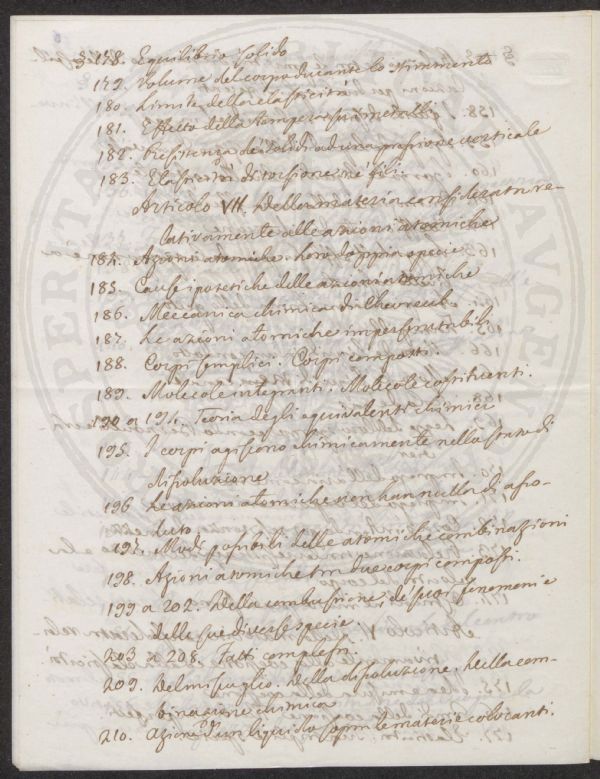 § 178. Equilibrio solido
179. Volume del corpo durante lo stiramento
180. Limite della elasticità
181. Effetto della tempera su i metalli
182. Resistenza de' solidi ad una pressione verticale
183. Elasticità di torsione ne' fili.
Articolo VII. Della materia considerata re-
lativamente alle azioni atomiche
184. Azioni atomiche. Loro doppia specie
185. Cause ipotetiche delle azioni atomiche
186. Meccanica chimica di Chevreul
187. Le azioni atomiche imperscrutabili
188. Corpi semplici. Corpi composti.
189. Molecole integranti. Molecole costituenti.
190 a 194. Teoria degli equivalenti chimici
195. I corpi agiscono chimicamente nello stato di
dissoluzione
196 Le azioni atomiche non han nulla di asso-
luto
197. Modi possibili delle atomiche combinazioni
198. Azioni atomiche tra due corpi composti.
199 a 202. Della combustione, de' suoi fenomeni e
delle sue diverse specie.
203 a 208. Fatti complessi.
209. Del miscuglio. Della dissoluzione. Della com-
binazione chimica
210. Azione d'un liquido sopra le materie coloranti.
SPERITA
AVGE